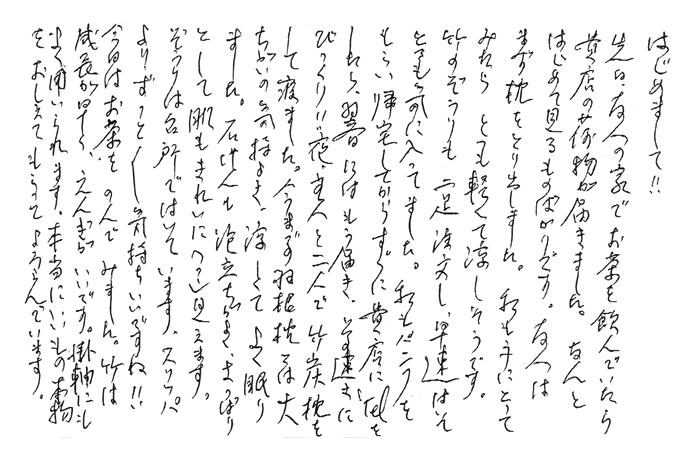 はじめまして!!
先日友人の家でお茶を飲んでいたら
貴店の荷物が届きました。なんと
はじめて見るものばかりです。友人は
まず枕をとり出しました。私も手にとって
みたら とても軽くて涼しそうです。
竹のぞうりも 二足注文し、早速はいて
とても気に入ってました。私もパンフを
もらい帰宅してからすぐに貴店にTelを
したら、翌日にはもう届き、その速さに
びっくり!!夜、主人と二人で竹炭枕を
して寝ました。今までの羽根枕とは大
ちがいの気持よさ、涼しくて よく眠り
ました。石けんも泡立ちがよく、さっぱり
として肌もきれいに 見えます。
ぞうりは台所ではいて います。スリッパ
よりずっと 気持ちいいですね!!
今日はお茶を のんで みました。竹は
成長が早く、えんぎが いいです。掛軸にも
よく用いられます。本当にいいもの本物
を おしえて もらって よろこんでいます。